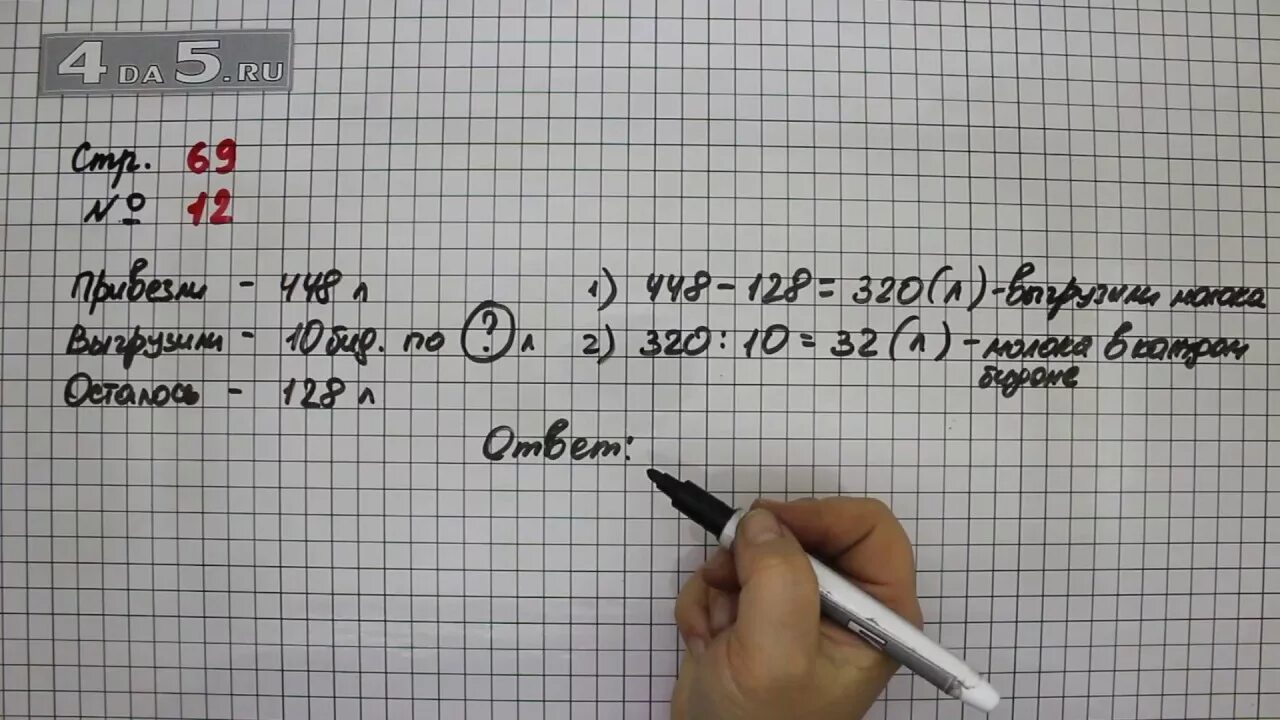 4DA5.RU
Стр. 69
№ 12
Привезли - 448 л
Выгрузили - 10 бид. по ? л
Осталось - 128 л
1) 448 - 128 = 320 (л) - выгрузили молока
2) 320 : 10 = 32 (л) - молока в каждом
бидоне
Ответ: